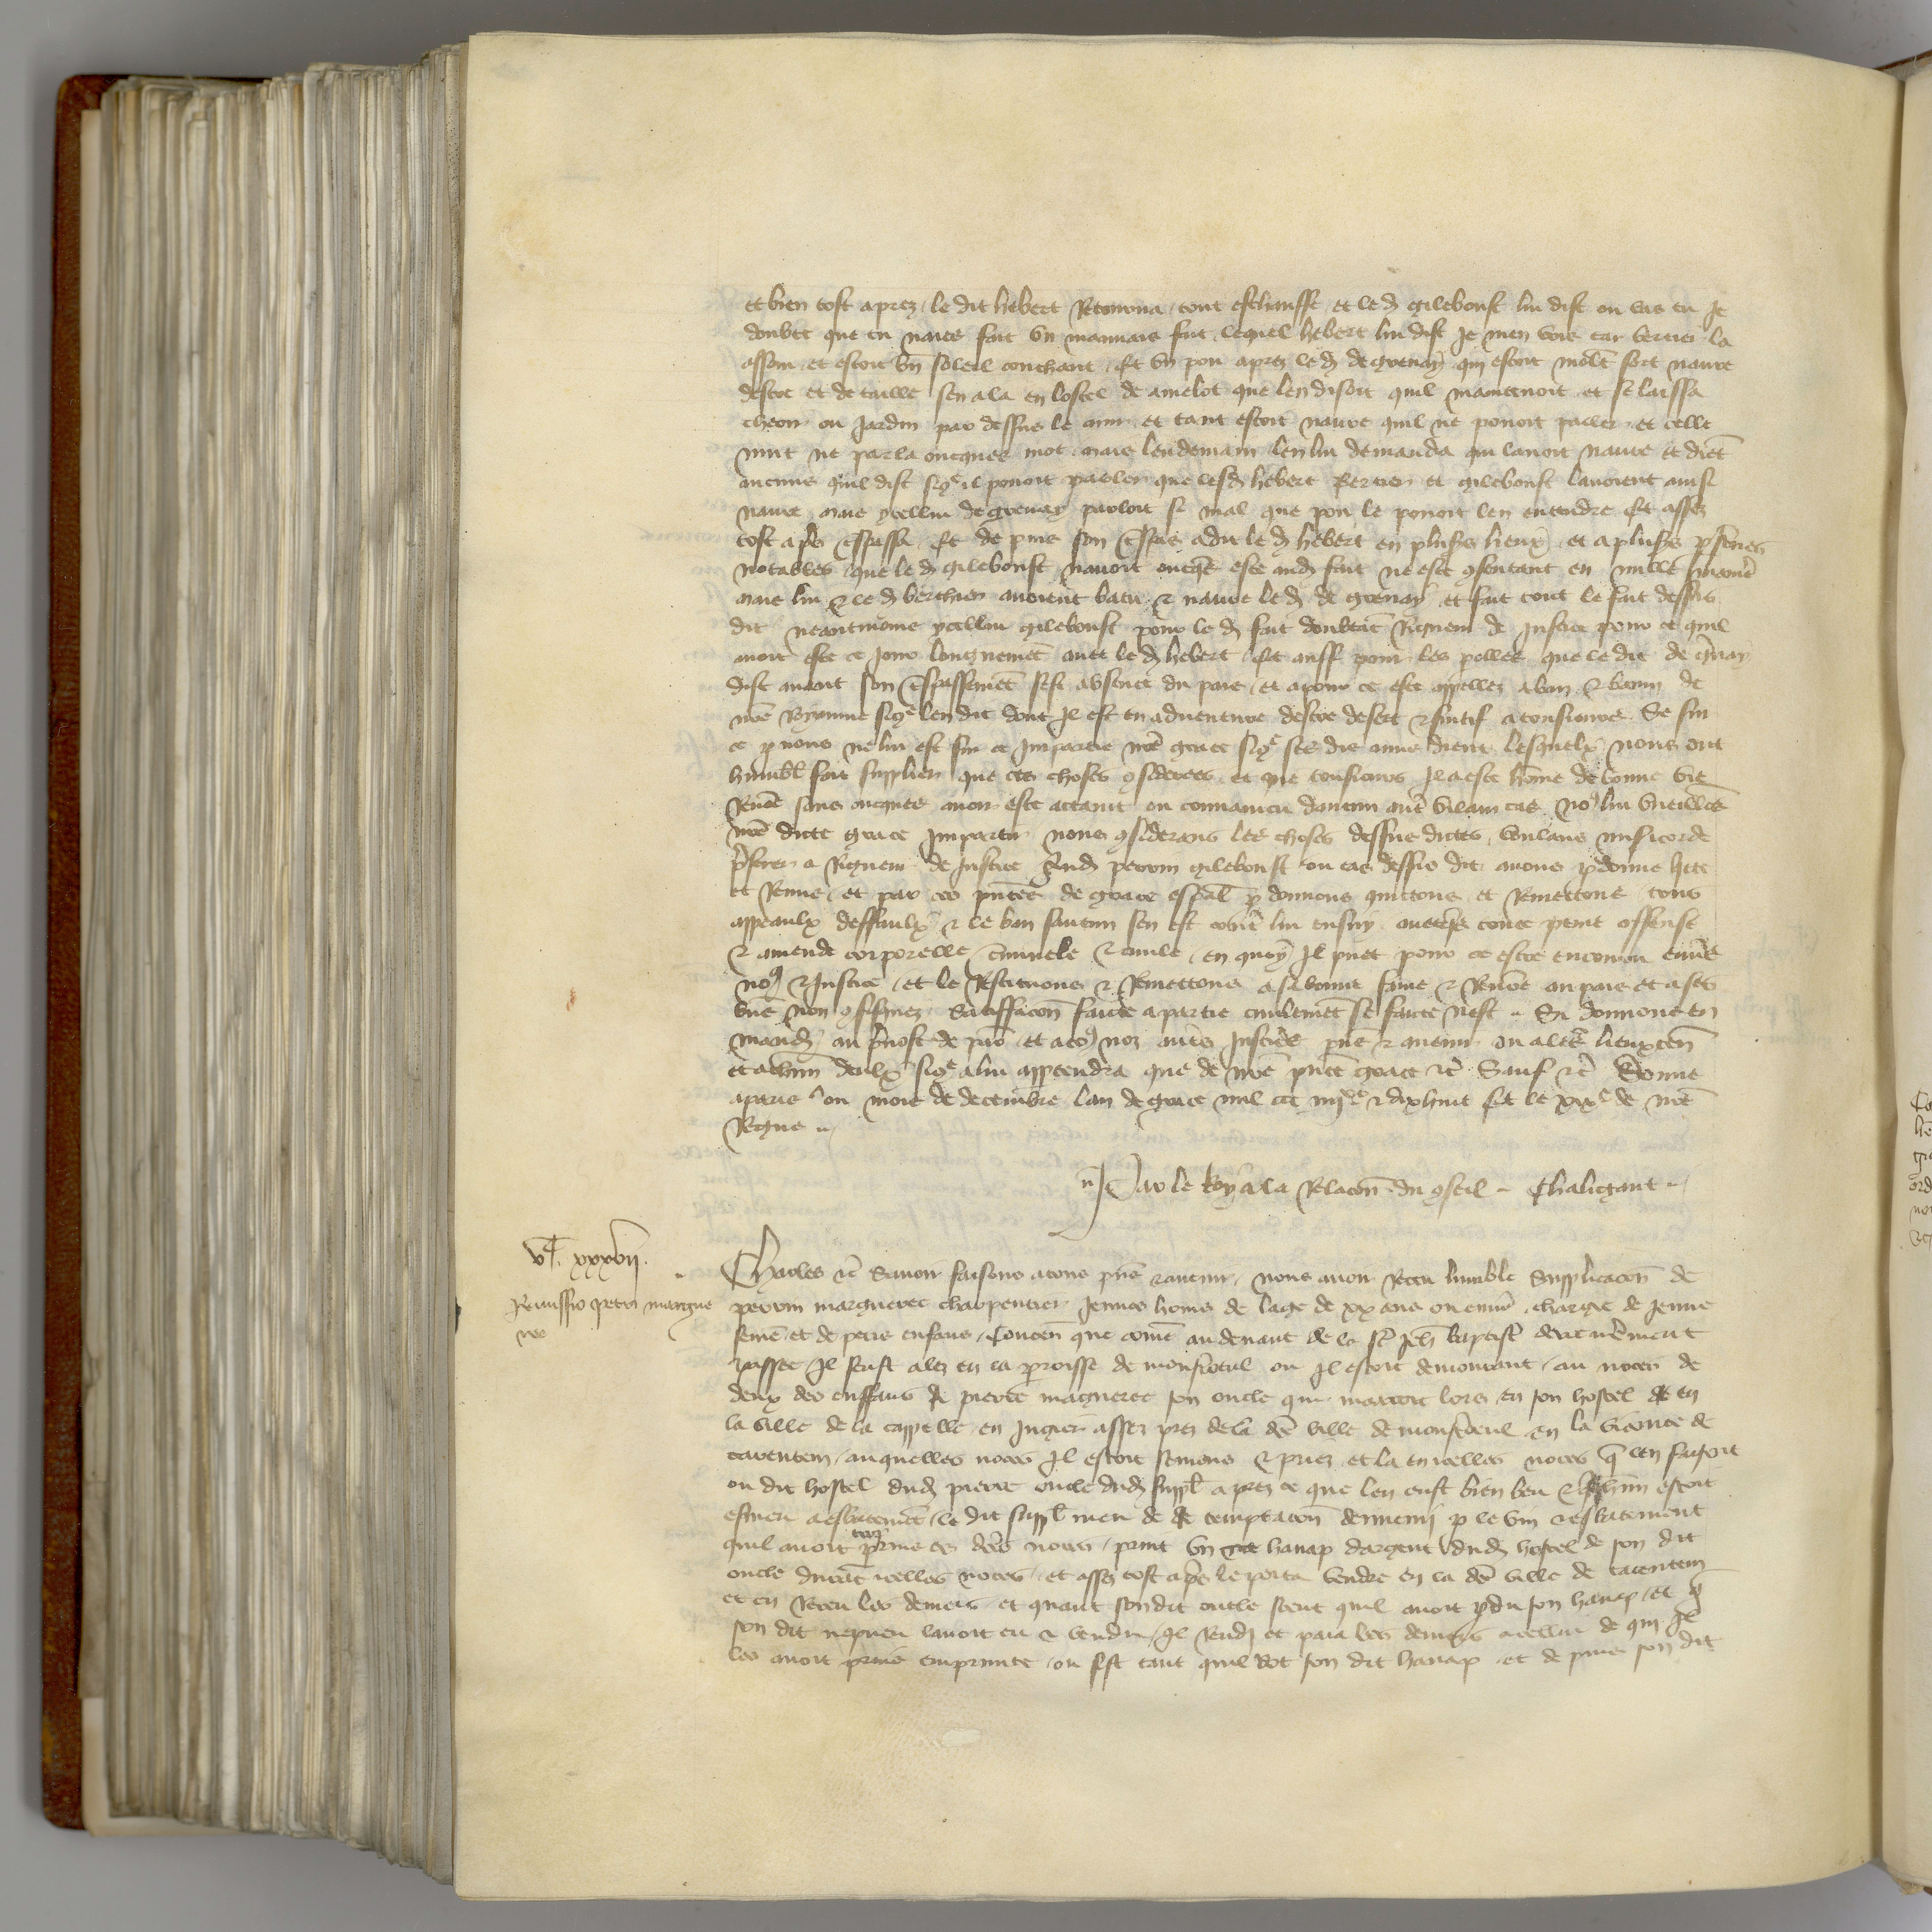 et bien tost aprez le dit hebert Retourna tout eschauffe et led gilebonst lui dist ou vas tu Je
doubte que tu naies fait un mauvais fait lequel hebert lui dist Je men vois car bertier la
assom et estoit vn soleil couchant Et vn pou aprez led de grenay qui estoit molt fort navre
destoc et de taille sen ala en lostel de amelot que len disoit quil maintenoit et se laissa
cheoir ou Jardin par dessus le mur et tant estoit navre quil ne pouoit parler et celle
nuit ne parla oncques mot mais lendemain len lui demanda qui lavoit navre et dient
aucuns quil dist sicoe il pouoit parler que lesd hebert Bertier et gilebonst lavoient ainsi
navre mais ycellui de grenay parloit si mal que pou le pouoit len entendre Et assez
tost apres trespassa Et de puis son trespas a dit led hebert en plus lieux et a plus psones
notables que led gilebonst navoit oncqs este aud fait ne este consentant en nulle maniere
mais lui & led berthier avoient batu & navre led de grenay et fait tout le fait dessus
dit neantmoins ycellui gilebonst pour led fait doubtat Rigueur de Justice pour ce quil
avoit este ce Jour longuemet avec led hebert Et aussi pour les parolles que le dit de grnay
dist avant son trespassemet sest absente du pais et a pour ce este appellez a ban & banni de
nre Royaume sicoe len dit dont Il est en adventure destre desert & fuitif a tousjours Se sur
ce p nous ne lui est sur ce Impartie nre grace sicoe ses diz amis dient lesquelx nous ont
humbl fait supplier que ces choses considerees et que tousjours Il a este home de bonne vie
Renoe sans oncques avoir este attaint ou convaincu daucun autre vilain cas nous lui vueillions
nre dicte grace Impartir nous considerans les choses dessus dictes voulans misicorde
preferer a Rigueur de Justice Aud perrin gilebonst ou cas dessus dit avons pdonne hete
et Remis et par ces pntes de grace espal p donnons quittons et Remettons tous
appeaulx deffaulx & le ban saucun sen est contre lui ensuy avecqs toute peine offense
& amende corporelle cminele & civile en quoy Il puet pour ce estre encouru envers
nous & Justice et le Restituons & Remettons a sa bonne fame & Renoe au pais et a ses
biens non confisquez Satisfacon faicte a partie civilemet se faicte nest Si donnons en
mand au pvost de paris et a tous noz autres Justiciers pns & avenir ou a leurs lieuxten
et a chun deulx sicoe a lui apptendra que de nre pnte grace etc Sauf etc Donne
a paris ou mois de decembre lan de grace mil ccc iiijxx & dixhuit Et le xixe de nre
Regne
Par le Roy a la Relacon du conseil Chaligaut
Vc xxxvij
Remissio petri margue
rec
Charles etc Savoir faisons a tous pns & avenir nous avoir receu humble Supplicacon de
perrin marguerec charpentier Jennes homs de laage de xx ans ou enviro charge de Jenne
feme et de petis enfans Conten que come au devant de la st Jeh baptiste derrenierement
passee Il feust alez en la proisse de monstreul ou Il estoit demourant au noces de
deux des enffans de pierre marguerec son oncle qui marioit lors en son hostel en
la ville de la cappelle en Juger assez prez de la de ville de monstreul en la viconte de
carenten auquelles noces Il estoit semons & priez et la en icelles noces q len faisoit
ou dit hostel dud pierre oncle dud suppl aprez ce que len eust bien beu & chun estoit
esmeu a esbatemet le dit suppl meu de temptacon dennemi p le vin & esbatement
quil avoit trop prins es des noces print vn hanap dargent dud hostel de son dit
oncle durat icelles noces et assez tost apres le porta vendre en la de ville de carenten
et en Receu les deniers et quant son dit oncle sceut quil avoit pdu son hanap et q
son dit nepveu lavoit eu & vendu Il Rendi et paia les deniers a cellui de qui Il
les avoit prins emprunte ou fist tant quil Rot son dit hanap et de puis son dit